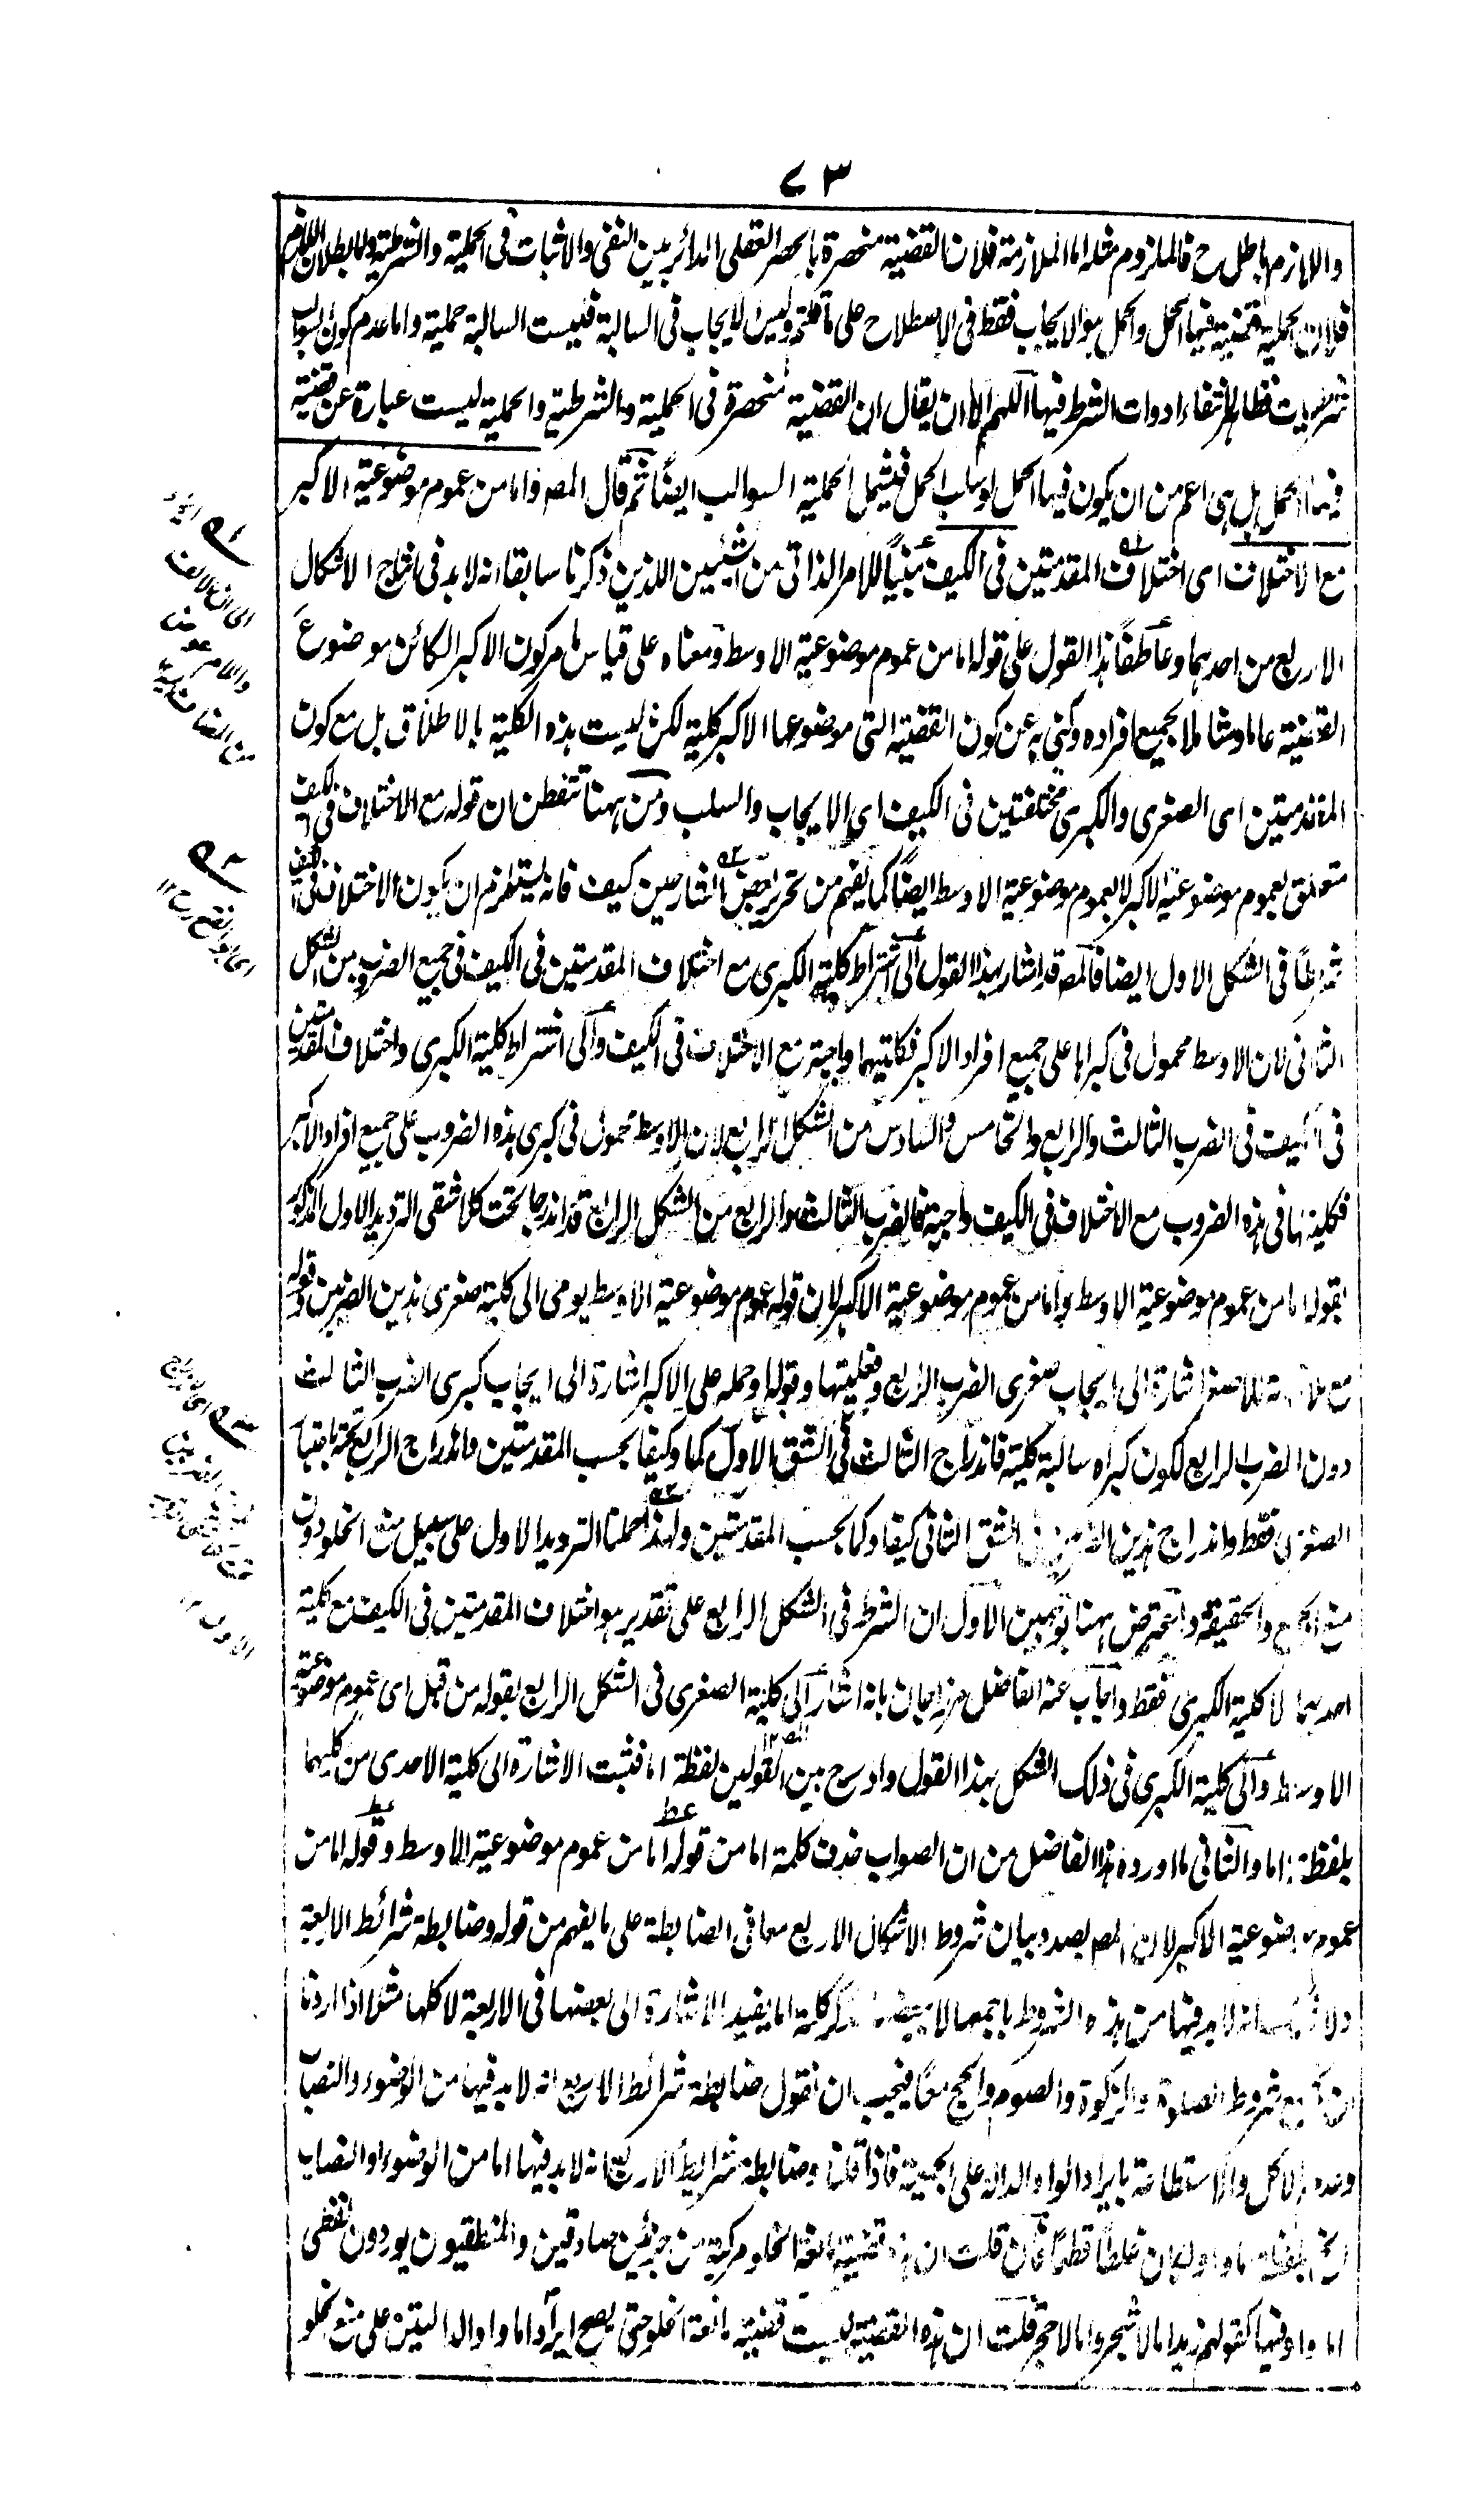 ٧٣
واللازم باطل ح فالملزوم مثله اما الملازمة فلان القضية منحصرة بالحصر العقلى الدائر بين النفى والاثبات فى الحملية والشرطية واما بطلان اللازم
فلان الحملية قضية فيها الحمل والحمل هو الايجاب فقط فى الاصطلاح على ما قلتم وليس الايجاب فى السالبة فليست السالبة حملية واما عدم كون السوالب
شرطيات فظاهر لانتفاء ادوات الشرط فيها اللهم الا ان يقال ان القضية منحصرة فى الحملية والشرطية والحملية ليست عبارة عن قضية
فيها الحمل بل هى اعم من ان يكون فيها الحمل او سلب الحمل فيشمل الحملية السوالب ايضًا ثم قال المصـ واما من عموم موضوعية الاكبر
مع الاختلاف اى اختلاف المقدمتين فى الكيف مبنيًا للامر الذاتى من الشيئين اللذين ذكرنا سابقا انه لابد فى انتاج الاشكال
الاربع من احدهما وعاطفًا هذا القول على قوله اما من عموم موضوعية الاوسط ومعناه على قياس ما مر كون الاكبر الكائن موضوع
القضية عاما وشاملا لجميع افراده وكنى به عن كون القضية التى موضوعها الاكبر كلية لكن ليست هذه الكلية بالاطلاق بل مع كون
المقدمتين اى الصغرى والكبرى مختلفتين فى الكيف اى الايجاب والسلب ومن ههنا تتفطن ان قوله مع الاختلاف فى الكيف
متعلق بعموم موضوعية الاكبر لا بعموم موضوعية الاوسط ايضًا كما يفهم من تحرير بعض الشارحين كيف فانه يستلزم ان يكون الاختلاف فى الكيف
شرطًا فى الشكل الاول ايضا فالمصـ قد اشار بهذا القول الى اشتراط كلية الكبرى مع اختلاف المقدمتين فى الكيف فى جميع الضروب من الشكل
الثانى لان الاوسط محمول فى كبراها على جميع افراد الاكبر فكليتها واجبة مع الاختلاف فى الكيف والى اشتراط كلية الكبرى واختلاف المقدمتين
فى الكيف فى الضرب الثالث والرابع والخامس والسادس من الشكل الرابع لان الاوسط محمول فى كبرى هذه الضروب على جميع افراد الاكبر
فكليتها فى هذه الضروب مع الاختلاف فى الكيف واجبة فالضرب الثالث والرابع من الشكل الرابع قد اندرجا تحت كلا شقى الترديد الاول المذكور
بقوله اما من عموم موضوعية الاوسط واما من عموم موضوعية الاكبر لان قوله عموم موضوعية الاوسط يومى الى كلية صغرى هذين الضربين وقوله
مع ملاقاته للاصغر اشارة الى ايجاب صغرى الضرب الرابع وفعليتها وقوله او حمله على الاكبر اشارة الى ايجاب كبرى الضرب الثالث
دون الضرب الرابع لكون كبراه سالبة كلية فاندراج الثالث فى الشق الاول كما وكيفا بحسب المقدمتين واندراج الرابع تحته باعتبار
الصغرى فقط واندراج هذين الضربين فى الشق الثانى كيفا وكما بحسب المقدمتين ولهذا حملنا الترديد الاول على سبيل منع الخلو دون
منع الجمع والحقيقة واعترض ههنا بوجهين الاول ان الشرط فى الشكل الرابع على تقدير هو اختلاف المقدمتين فى الكيف مع كلية
احدهما لا كلية الكبرى فقط واجاب عنه الفاضل مرزاجان بانه اشار الى كلية الصغرى فى الشكل الرابع بقوله من قبل اى عموم موضوعية
الاوسط والى كلية الكبرى فى ذلك الشكل بهذا القول وادرج بين القولين لفظة اما فثبت الاشارة الى كلية الاحدى من كليهما
بلفظة اما والثانى ما اورده هذا الفاضل من ان الصواب حذف كلمة اما من قوله اما من عموم موضوعية الاوسط وقوله اما من
عموم موضوعية الاكبر لان المصـ بصدد بيان شروط الاشكال الاربع معا فى الضابطة على ما يفهم من قوله وضابطة شرائط الاربعة
ولا شك انه لابد فيها من هذه الشروط باجمعها لا ببعضها وذكر كلمة اما يفيد الاشارة الى بعضها فى الاربعة لا كلها مثلا اذا اردنا
ان نجمع شروط الصلوة والزكوة والصوم والحج معًا فيجب ان نقول ضابطة شرائط الاربع انه لابد فيها من الوضوء والنصاب
وعدم الاكل والاستطاعة بايراد الواو الدالة على الجمعية فاذا قلنا وضابطة شرايط الاربع انه لابد فيها اما من الوضوء او النصاب
الخ بلفظة اما واو لكان غلطًا قطعًا فان قلت ان هذه قضية مانعة الخلو مركبة من جزئين صادقين والمنطقيون يوردون لفظى
اما واو فيها كقولهم زيد اما لا شجر واما لا حجر قلت ان هذه القضية ليست قضية مانعة الخلو حتى يصح ايراد اما واو الدالتين على منع الخلو